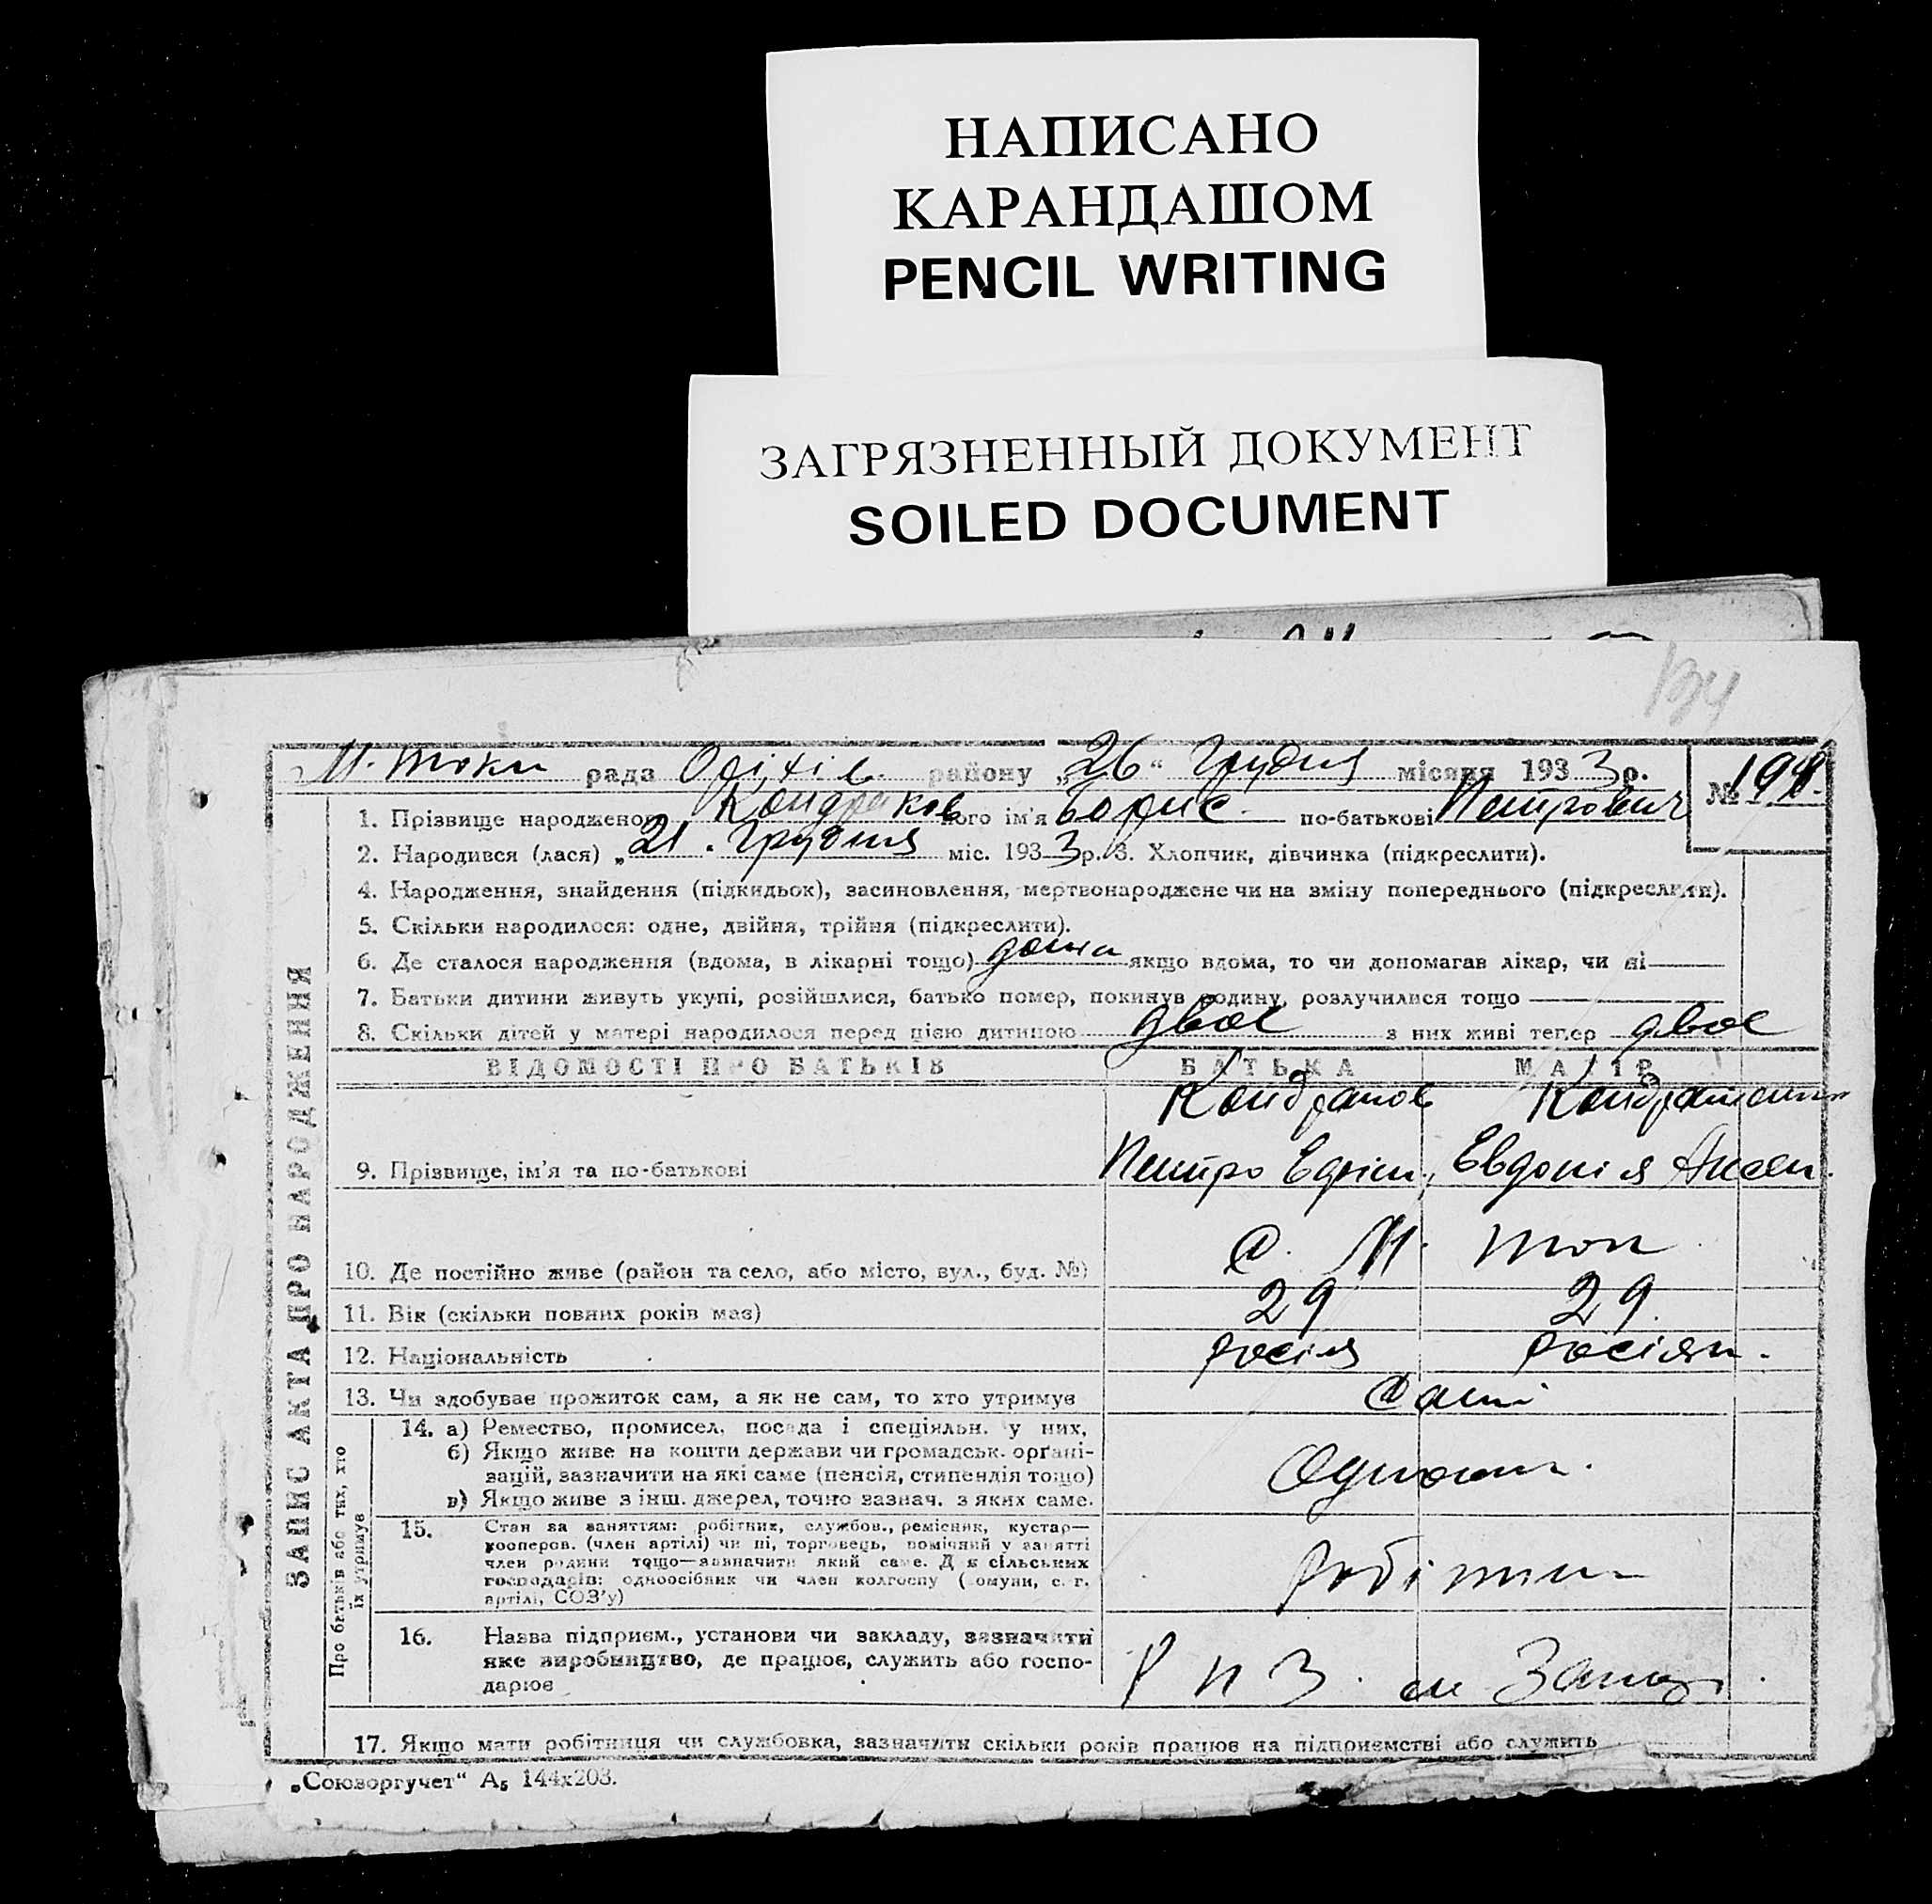 НАПИСАНО
КАРАНДАШОМ
PENCIL WRITING
ЗАГРЯЗНЕННЫЙ ДОКУМЕНТ
SOILED DOCUMENT
М. Токм рада Оріхів. району „26“ Грудня місяця 1933 р. № 198.
1. Прізвище народженого Кондраков його ім'я Борис по-батькові Петрович
2. Народився (лася) „21. Грудня міс. 1933 р. 3. Хлопчик, дівчинка (підкреслити).
4. Народження, знайдення (підкидьок), засиновлення, мертвонароджене чи на зміну попереднього (підкреслити).
5. Скільки народилося: одне, двійня, трійня (підкреслити).
6. Де сталося народження (вдома, в лікарні тощо) дома якщо вдома, то чи допомагав лікар, чи ні
7. Батьки дитини живуть укупі, розійшлися, батько помер, покинув родину, розлучилися тощо
8. Скільки дітей у матері народилося перед цією дитиною двоє з них живі тепер двоє
ЗАПИС АКТА ПРО НАРОДЖЕННЯ
ВІДОМОСТІ ПРО БАТЬКІВ БАТЬКА МАТІР
Кондраков
9. Прізвище, ім'я та по-батькові Петро Ефрім. Евдокія Аксен.
10. Де постійно живе (район та село, або місто, вул., буд. №) с. М. Ток
11. Вік (скільки повних років має) 29 29.
12. Національність росія росіян.
13. Чи здобуває прожиток сам, а як не сам, то хто утримує Самі
Про батьків або тих, хто їх утримує
14. а) Ремество, промисел, посада і спеціяльн. у них.
б) Якщо живе на кошти держави чи громадськ. орґані-
зацій, зазначити на які саме (пенсія, стипендія тощо)
в) Якщо живе з інш. джерел, точно зазнач. з яких саме.
15. Стан за заняттям: робітник, службов., ремісник, кустар—
кооперов. (член артілі) чи ні, торговець, помічний у занятті
член родини тощо—зазначити який саме. Для сільських
господарів: одноосібник чи член колгоспу (комуни, с. г.
артілі, СОЗ'у)
робітник
16. Назва підприєм., установи чи закладу, зазначити
яке виробництво, де працює, служить або госпо-
дарює
17. Якщо мати робітниця чи службовка, зазначити скільки років працює на підприємстві або служить
„Союзоргучет“ А₅ 144х203.